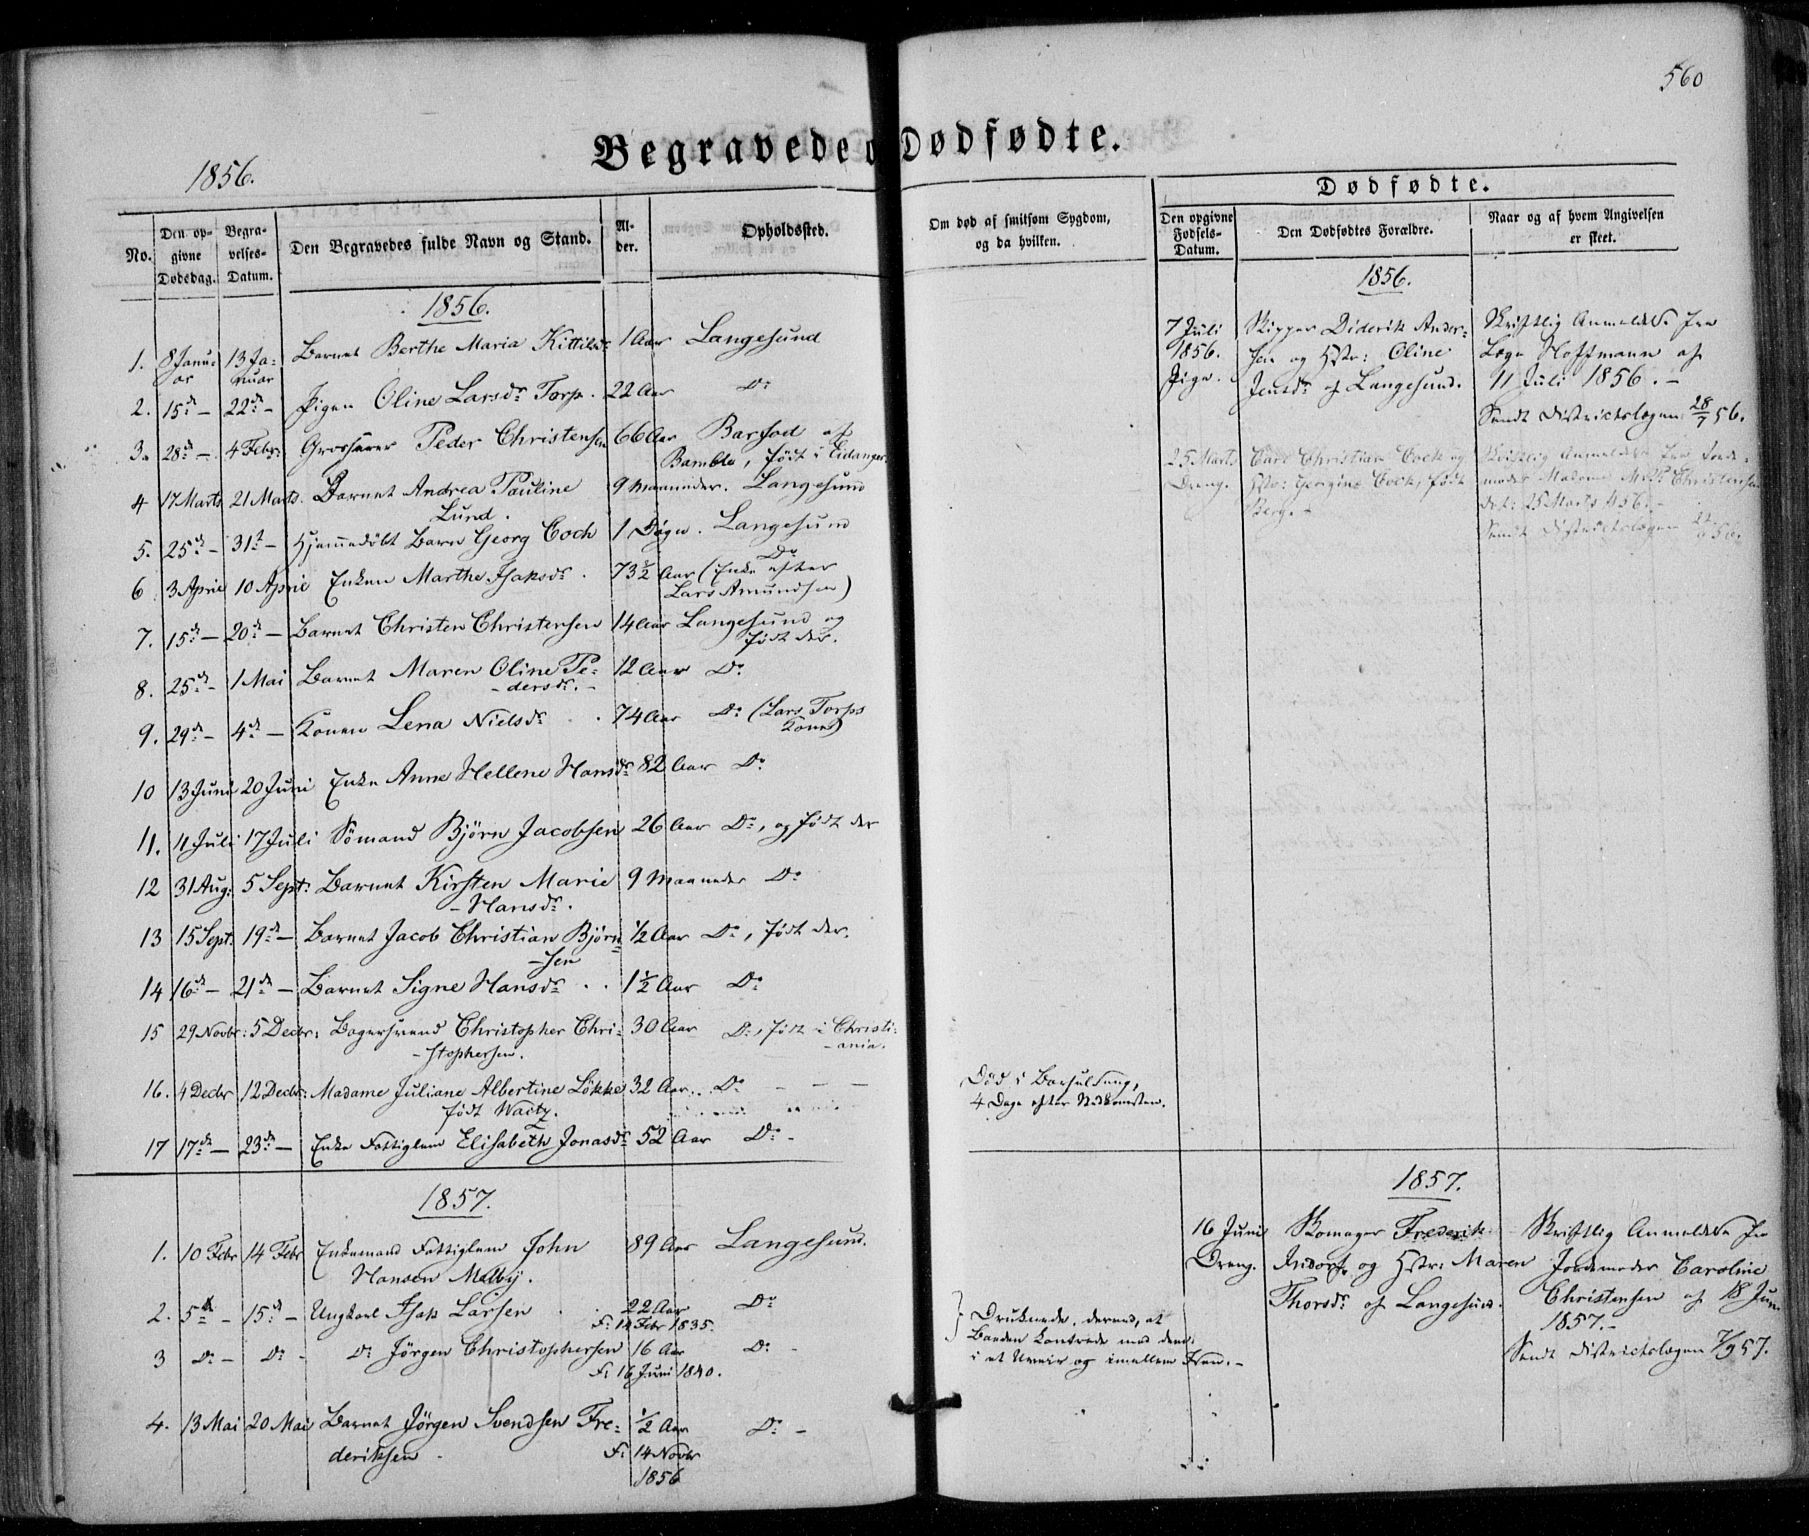 560
Begravede o Dødfødte.
1856.
Dødfødte.
No.
Den opgivne Dødsdag.
Begravelses-Datum.
Den Begravedes fulde Navn og Stand.
Alder.
Opholdssted.
Om død af smitsom Sygdom, og da hvilken.
Den opgivne Fødsels-Datum.
Den Dødfødtes Forældre.
Naar og af hvem Angivelsen er skeet.
1856.
1. 8 Januar 13 Januar Barnet Berthe Maria Kittilsdr 1 Aar Langesund
2. 15de — 22de — Pigen Oline Larsdr Torp. 22 Aar Do
3. 28de — 4 Febr: Peder Christensen 66 Aar Barfod af
Bamble, født i Eidanger.
4 17 Marts 21 Marts. Barnet Andrea Pauline 9 Maaneder. Langesund
Lund.
5. 25de — 31te — Hjemmedøbt Barn Georg Cock 1 Døgn. Langesund
6 3 April 10 April Enken Marthe Isaksdr. 73½ Aar Do (Enke efter
Lars Amundsen)
7. 15de — 20de — Barnet Christen Christensen 14 Aar Langesund og
født der.
8. 25de — 1 Mai Barnet Maren Oline Pe- 12 Aar Do
dersdr. —
9. 29de — 4de — Konen Lena Nielsdr . . 74 Aar Do (Lars Torps
Kone)
10 13 Juni 20 Juni Enke Anne Hellene Hansdr 82 Aar Do
11. 11 Juli 17 Juli Sömand Björn Jacobsen 26 Aar Do, og født der
12 31 Aug: 5 Sept: Barnet Kirsten Marie 9 Maaneder Do
— Hansdr.
13 15 Sept: 19de — Barnet Jacob Christian Björn- ½ Aar Do, født der.
— sen
14 16de — 21de — Barnet Signe Hansdr . . 1½ Aar Do
15 29 Novbr: 5 Decbr: Bagersvend Christopher Chri- 30 Aar Do, født i Christi-
— stophersen. — ania.
16. 4 Decbr 12 Decbr: Madame Juliane Albertine Lökke 32 Aar. Do — — —
født
Død i Barselseng,
4 Dage efter Nedkomsten.
17 17de — 23de — Enke Fattiglem Elisabeth Jonasdr 52 Aar Do —
1857.
1. 10 Febr 14 Febr Enkemand Fattiglem John 89 Aar Langesund.
Hansen Melby.
2. 5te — 15de — Ungkarl Isak Larsen . . 22 Aar Do
F: 14 Febr 1835.
3 Do — Do — Do Jörgen Christophersen 16 Aar Do —
F: 16 Juni 1840.
Druknede, derved, at
Baaden kantrede med dem
i et Uveir og imellem Isen. —
4. 13 Mai 20 Mai Barnet Jörgen Svendsen Fre- ½ Aar Do —
deriksen. F: 14 Novbr
1856
1856.
7 Juli Skipper Diderik Ander- Skriftlig Anmeldelse fra
1856. sen og Hstr: Oline Læge Hoffmann af
Pige. Jensdr af Langesund. 11 Juli 1856. —
Sendt Districtslægen 28/7 56.
25 Marts Carl Christian Cock og Skriftlig Anmeldelse fra Jorde-
Dreng. Hstr: Cock, født moder Christensen
Berg. — dat: 25 Marts 1856. —
Sendt Districtslægen
1857.
16 Juni Skomager Frederik Skriftlig Anmeldelse fra
Dreng. og Hstr: Maren Jordemoder Caroline
Thorsdr af Langesund. Christensen af 18 Juni
1857. —
Sendt Districtslægen 7/9 57.